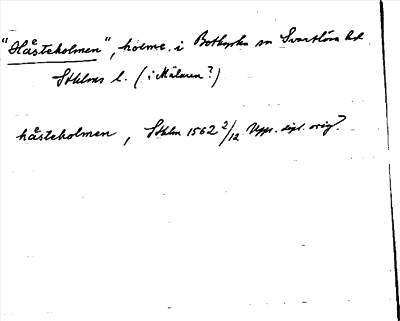 "Håsteholmen", holme i Botkyrka sn Svartlösa hd
Sthlms l. (i Mälaren?)
håsteholmen, Sthlm 1562 2/12 Upps. dipl. orig?